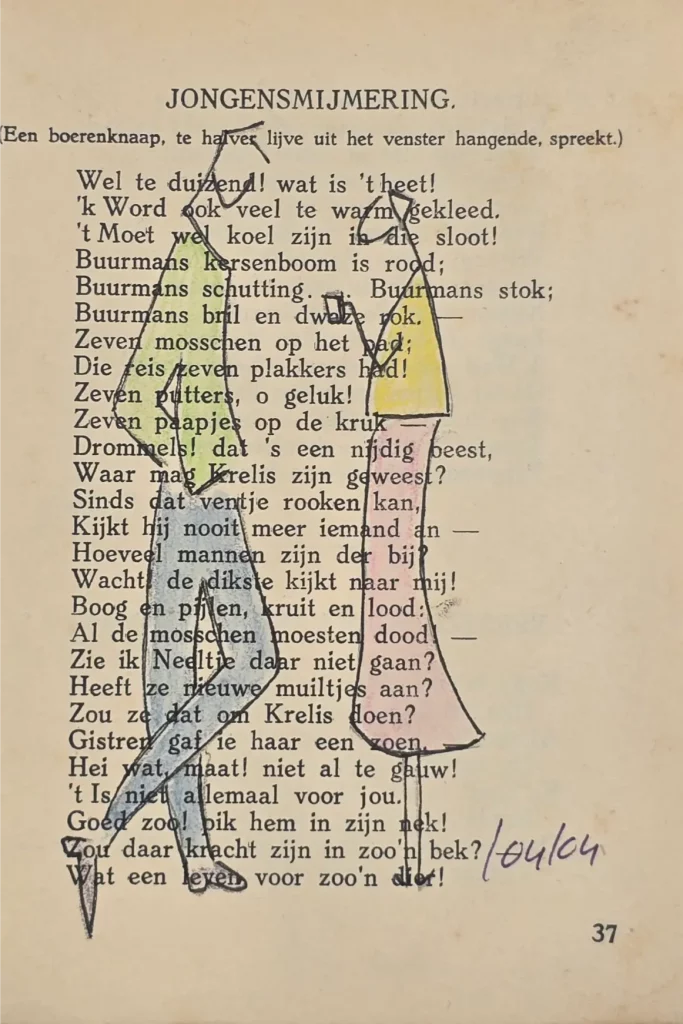 JONGENSMIJMERING.
(Een boerenknaap, te halver lijve uit het venster hangende, spreekt.)
Wel te duizend! wat is 't heet!
'k Word ook veel te warm gekleed.
't Moet wel koel zijn in die sloot!
Buurmans kersenboom is rood;
Buurmans schutting. . . Buurmans stok;
Buurmans bril en dwaze rok. —
Zeven mosschen op het pad;
Die reis zeven plakkers had!
Zeven putters, o geluk!
Zeven paapjes op de kruk —
Drommels! dat 's een nijdig beest,
Waar mag Krelis zijn geweest?
Sinds dat ventje rooken kan,
Kijkt hij nooit meer iemand an —
Hoeveel mannen zijn der bij?
Wacht! de dikste kijkt naar mij!
Boog en pijlen, kruit en lood:
Al de mosschen moesten dood! —
Zie ik Neeltje daar niet gaan?
Heeft ze nieuwe muiltjes aan?
Zou ze dat om Krelis doen?
Gistren gaf ie haar een zoen.
Hei wat, maat! niet al te gauw!
't Is niet allemaal voor jou.
Goed zoo! pik hem in zijn nek!
Zou daar kracht zijn in zoo'n bek?
Wat een leven voor zoo'n dier!
37